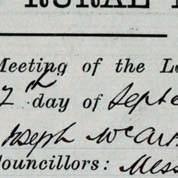 RURAL
Meeting of the Lo
7th day of Septe
Joseph McCar
Councillors: Mess